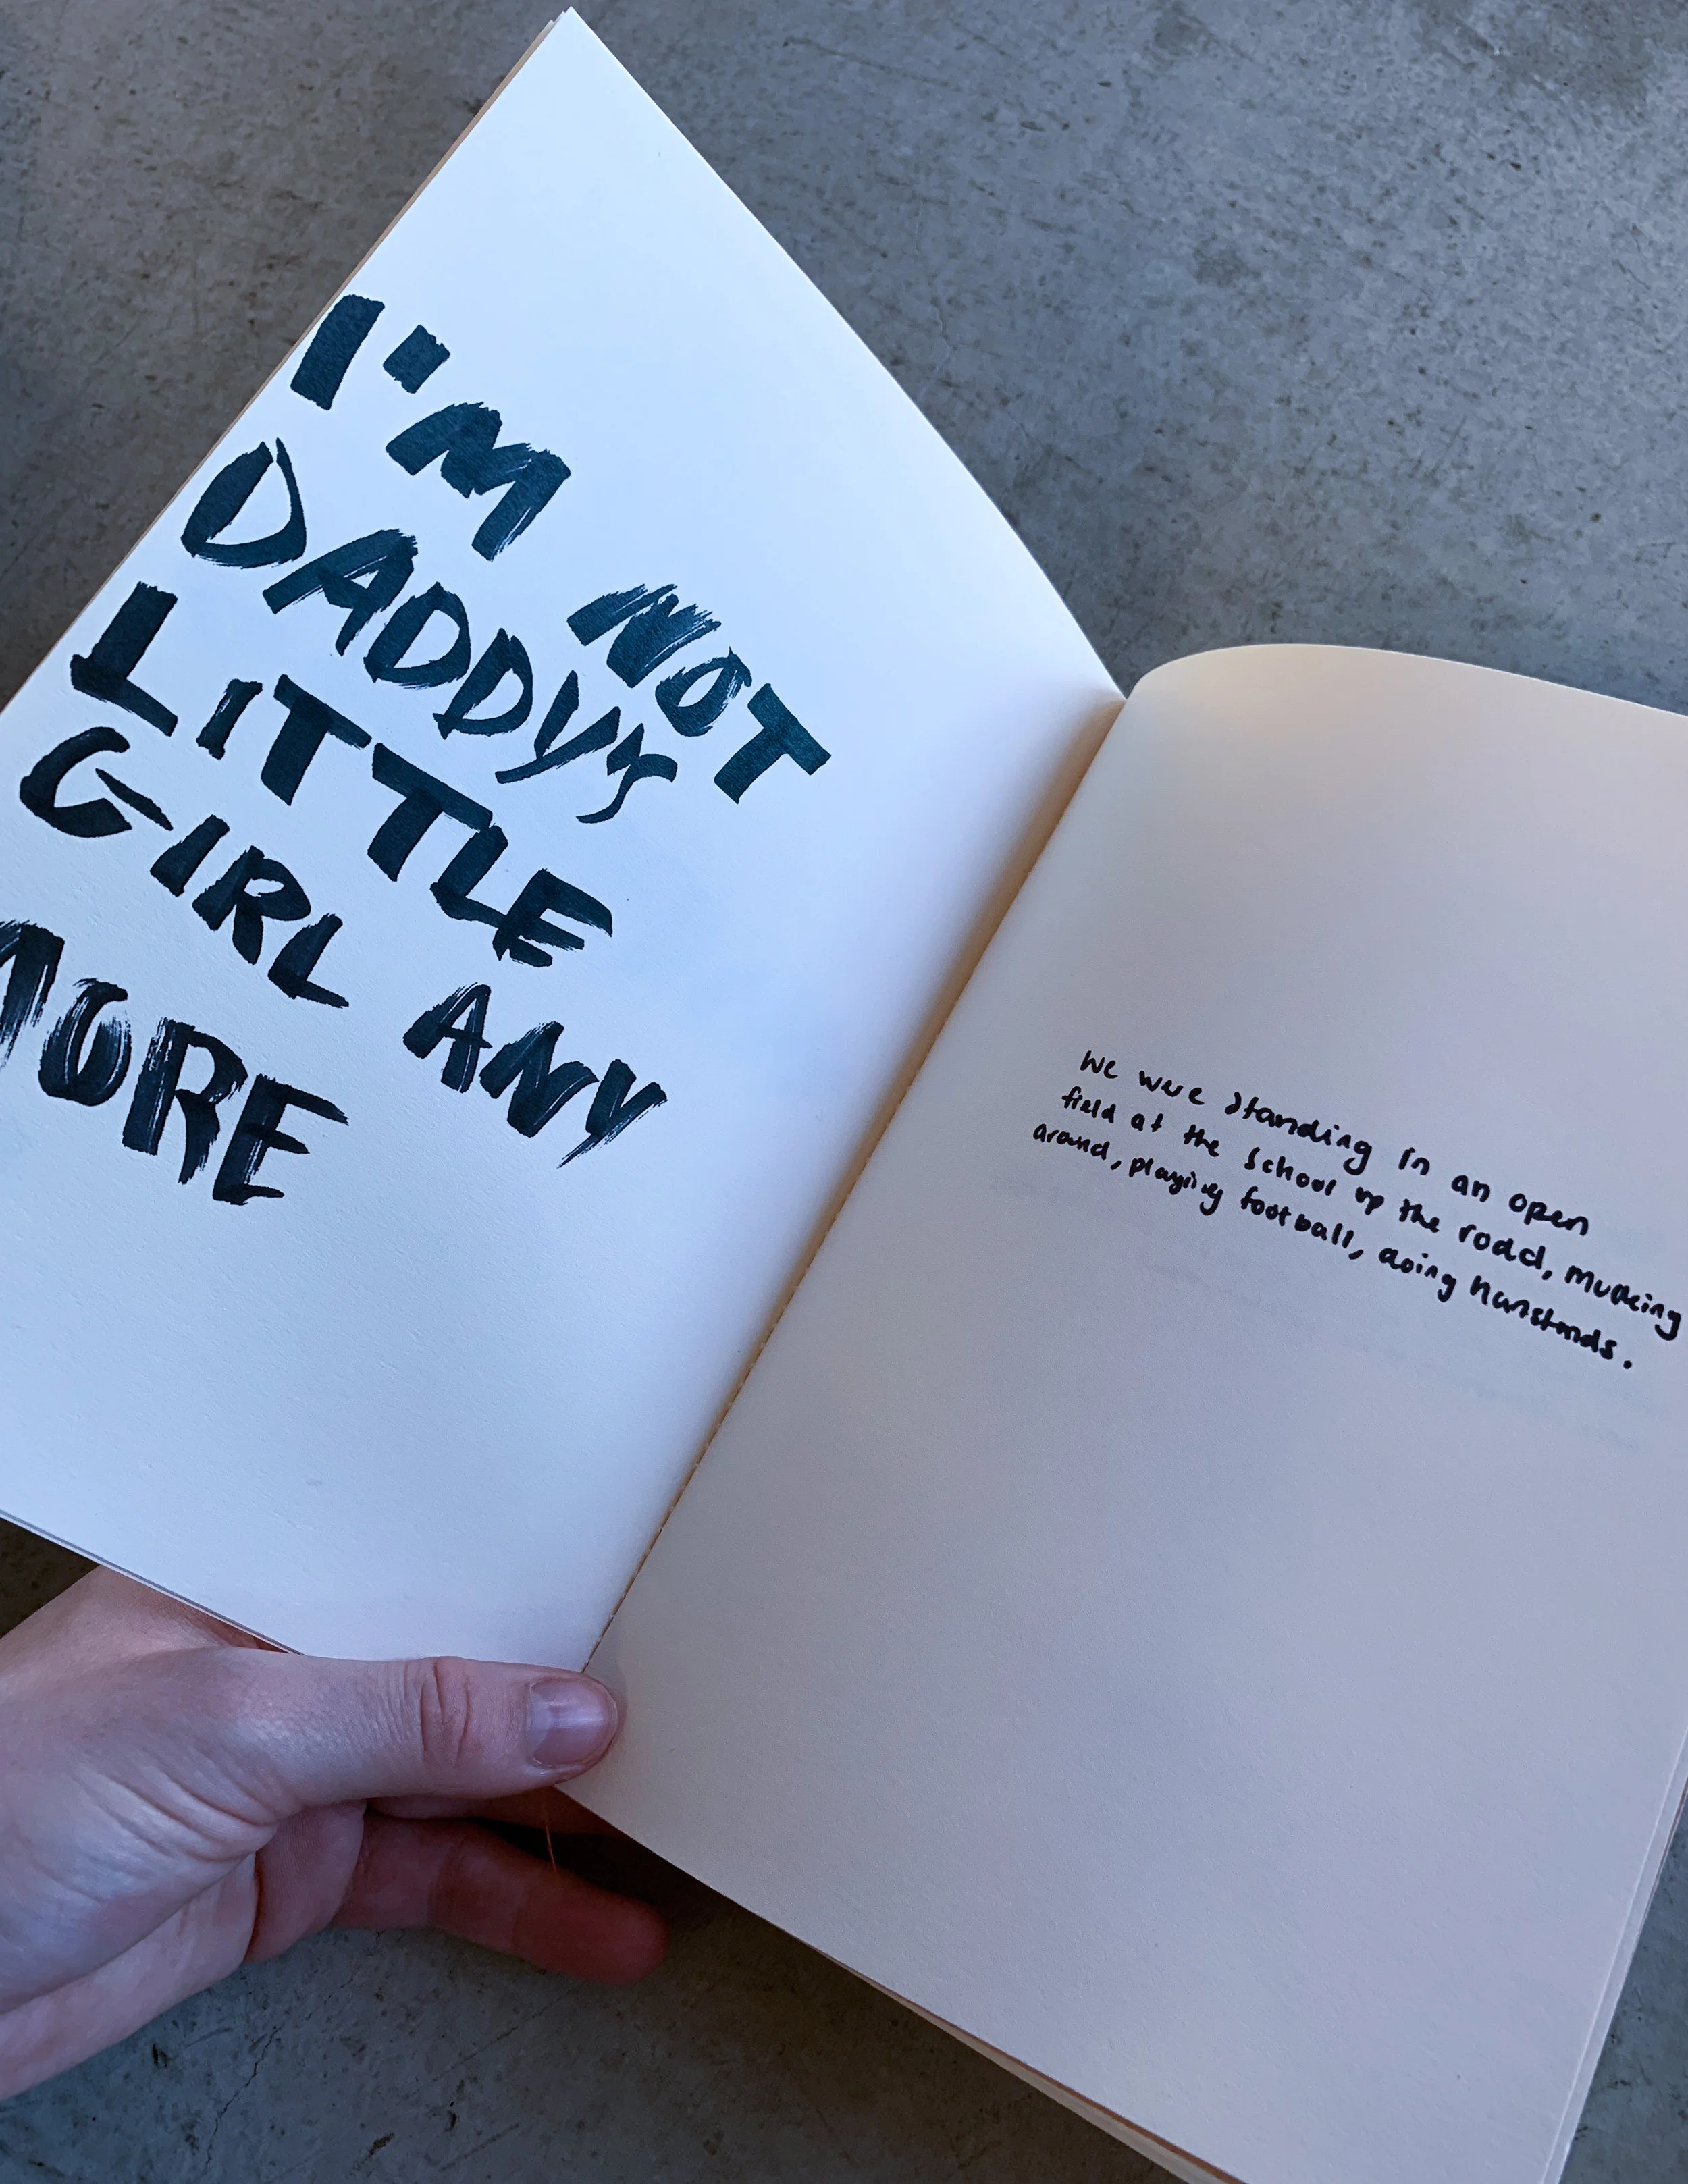 I'M NOT
DADDY'S
LITTLE
GIRL ANY
MORE
We were standing in an open
field at the school up the road, mucking
around, playing football, doing hanstands.